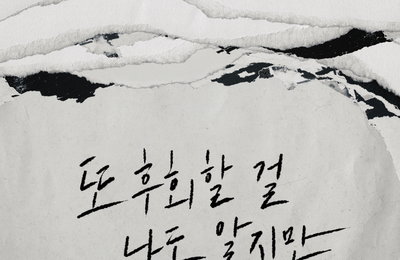 또 후회할 걸
나도 알지만